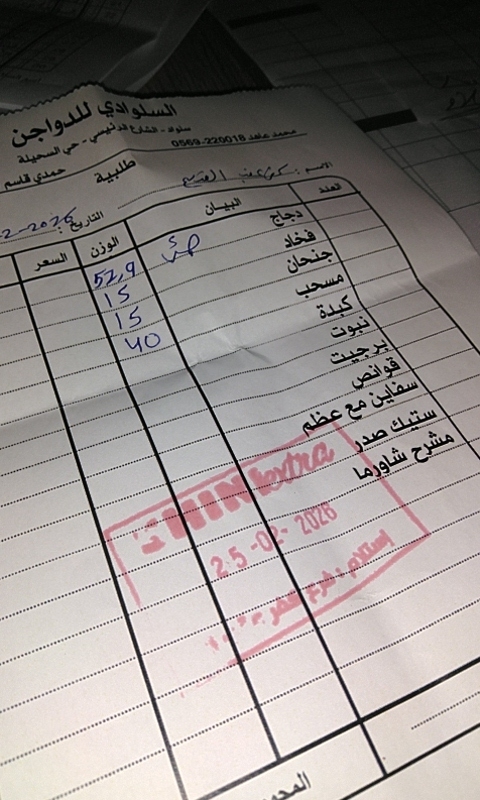 السلوادي للدواجن
سلواد - الشارع الرئيسي - حي السحيلة
محمد حامد 0569-220018
حمدي قاسم
طلبية
الاسم:
التاريخ: 2-2026
العدد البيان الوزن السعر
دجاج 52,9
فخاد 15
جنحان 15
مسحب 40
كبدة
نبوت
برجيت
قوانص
سفاين مع عظم
ستيك صدر
مشرح شاورما
extra
25-02-2026
إستلام فرع